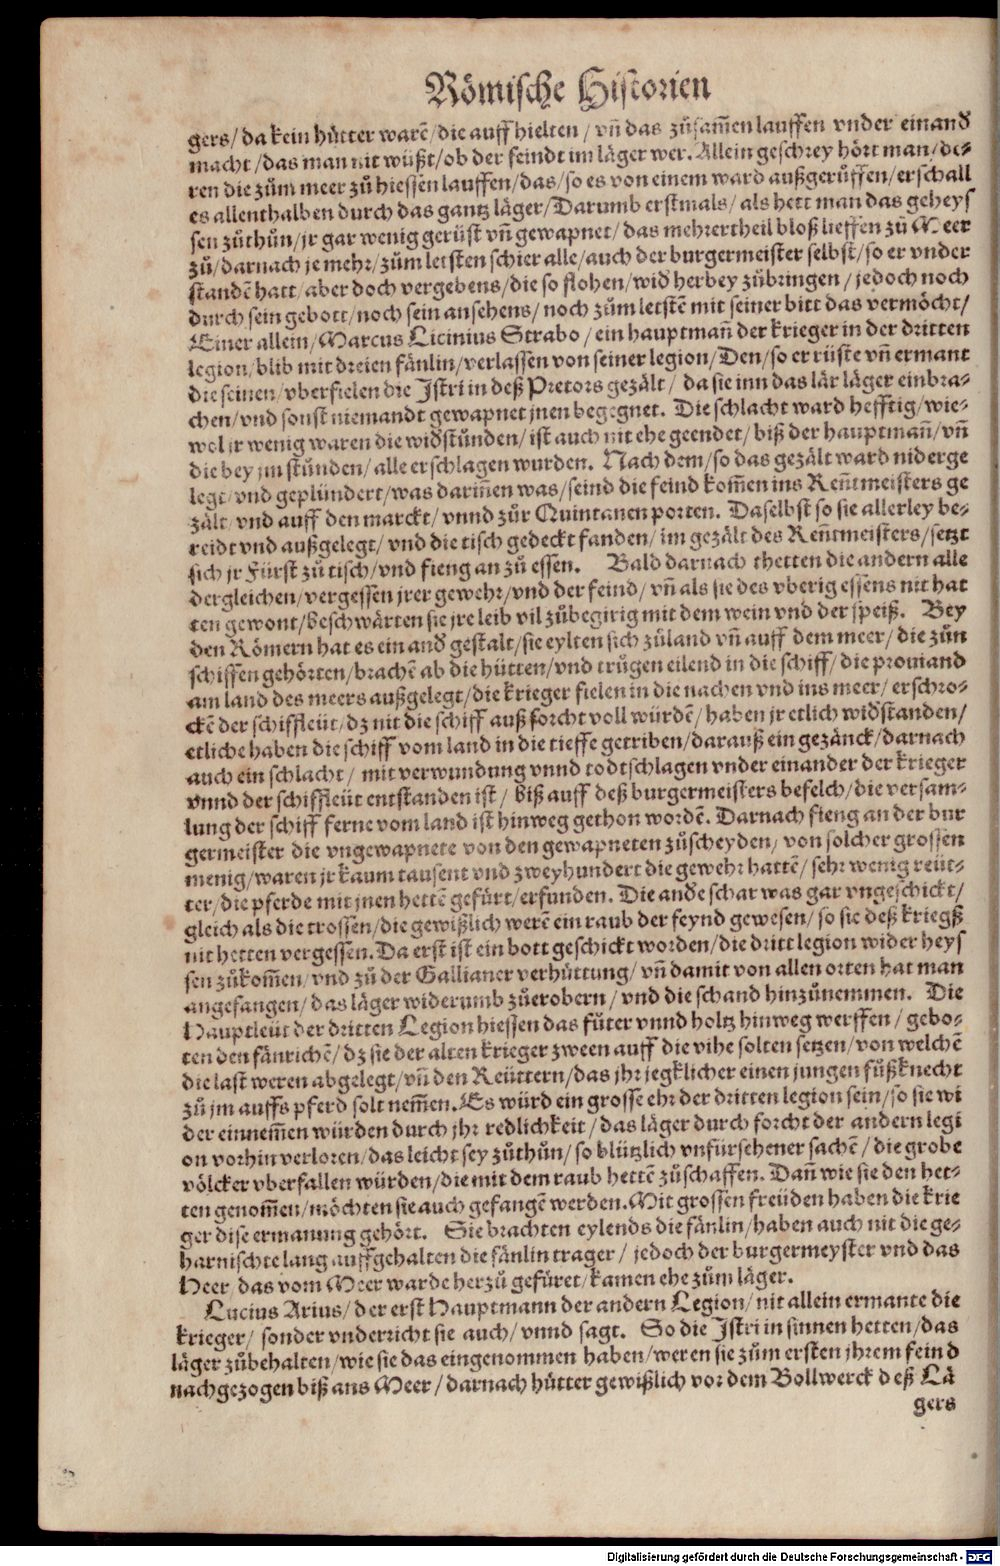 Römische Historien
gers/da kein hütter warē/die auff hielten/vñ das zůsam̄en lauffen vnder einand
macht/das man nit wüßt/ob der feindt im läger wer. Allein geschrey hört man/de-
ren die zům meer zů hiessen lauffen/das/so es von einem ward außgerůffen/erschall
es allenthalben durch das gantz läger/Darumb erstmals/als hett man das geheys
sen zůthůn/jr gar wenig gerüst vñ gewapnet/das mehrertheil bloß lieffen zů Meer
zů/darnach je mehr/zům letsten schier alle/auch der burgermeister selbst/so er vnder
standē hatt/aber doch vergebens/die so flohen/wid herbey zůbringen/jedoch noch
durch sein gebott/noch sein ansehens/noch zům letstē mit seiner bitt das vermöcht/
Einer allein/Marcus Licinius Strabo/ein hauptmañ der krieger in der dritten
legion/blib mit dreien fänlin/verlassen von seiner legion/Den/so er rüste vñ ermant
die seinen/vberfielen die Istri in deß Pretors gezält/da sie inn das lär läger einbra-
chen/vnd sonst niemandt gewapnet jnen begegnet. Die schlacht ward hefftig/wie-
wol jr wenig waren die widstůnden/ist auch nit ehe geendet/biß der hauptmañ/vñ
die bey jm stůnden/alle erschlagen wurden. Nach dem/so das gezält ward niderge
legt/vnd geplündert/was dariñen was/seind die feind kom̄en ins Reñtmeisters ge
zält/vnd auff den marckt/vnnd zůr Quintanen porten. Daselbst so sie allerley be-
reidt vnd außgelegt/vnd die tisch gedeckt fanden/im gezält des Reñtmeisters/setzt
sich jr Fürst zů tisch/vnd fieng an zů essen. Bald darnach thetten die andern alle
dergleichen/vergessen jrer gewehr/vnd der feind/vñ als sie des vberig essens nit hat
ten gewont/beschwärten sie jre leib vil zůbegirig mit dem wein vnd der speiß. Bey
den Römern hat es ein and gestalt/sie eylten sich zůland vñ auff dem meer/die zůn
schiffen gehörten/brachē ab die hütten/vnd trůgen eilend in die schiff/die prouiand
am land des meers außgelegt/die krieger fielen in die nachen vnd ins meer/erschro-
ckē der schiffleüt/dz nit die schiff auß forcht voll würdē/haben jr etlich widstanden/
etliche haben die schiff vom land in die tieffe getriben/darauß ein gezänck/darnach
auch ein schlacht/mit verwundung vnnd todtschlagen vnder einander der krieger
vnnd der schiffleüt entstanden ist/biß auff deß burgermeisters befelch/die versam-
lung der schiff ferne vom land ist hinweg gethon wordē. Darnach fieng an der bur
germeister die vngewapnete von den gewapneten zůscheyden/von solcher grossen
menig/waren jr kaum tausent vnd zweyhundert die gewehr hattē/sehr wenig reüt-
ter/die pferde mit jnen hettē gefürt/erfunden. Die ande schar was gar vngeschickt/
gleich als die trossen/die gewißlich werē ein raub der feynd gewesen/so sie deß kriegß
nit hetten vergessen. Da erst ist ein bott geschickt worden/die dritt legion wider heys
sen zůkom̄en/vnd zů der Gallianer verhüttung/vñ damit von allen orten hat man
angefangen/das läger widerumb zůerobern/vnd die schand hinzůnemmen. Die
Hauptleüt der dritten Legion hiessen das fůter vnnd holtz hinweg werffen/gebo-
ten den fänrichē/dz sie der alten krieger zween auff die vihe solten setzen/von welchē
die last weren abgelegt/vñ den Reüttern/das jhr jegklicher einen jungen fůßknecht
zů jm auffs pferd solt nem̄en. Es würd ein grosse ehr der dritten legion sein/so sie wi
der einnem̄en würden durch jhr redlichkeit/das läger durch forcht der andern legi
on vorhin verloren/das leicht sey zůthůn/so blützlich vnfürsehener sachē/die grobe
völcker vberfallen würden/die mit dem raub hettē zůschaffen. Dañ wie sie den het-
ten genom̄en/möchten sie auch gefangē werden. Mit grossen freüden haben die krie
ger dise ermanung gehört. Sie brachten eylends die fänlin/haben auch nit die ge-
harnischte lang auffgehalten die fänlin trager/jedoch der burgermeyster vnd das
Heer/das vom Meer warde herzů gefüret/kamen ehe zům läger.
Lucius Arius/der erst Hauptmann der andern Legion/nit allein ermante die
krieger/sonder vnderricht sie auch/vnnd sagt. So die Istri in sinnen hetten/das
läger zůbehalten/wie sie das eingenommen haben/weren sie zům ersten jhrem feind
nachgezogen biß ans Meer/darnach hütter gewißlich vor dem Bollwerck deß Lä
gers
Digitalisierung gefördert durch die Deutsche Forschungsgemeinschaft - DFG